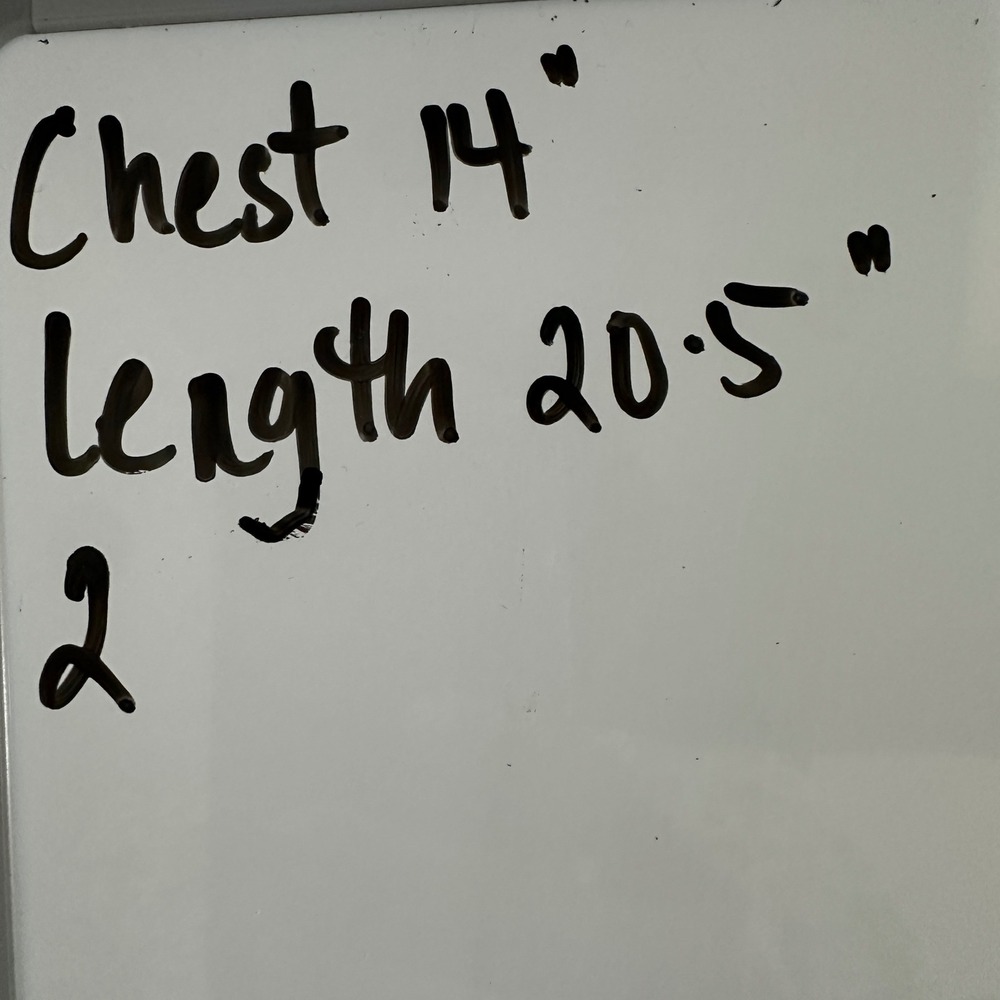 Chest 14"
Length 20.5"
2